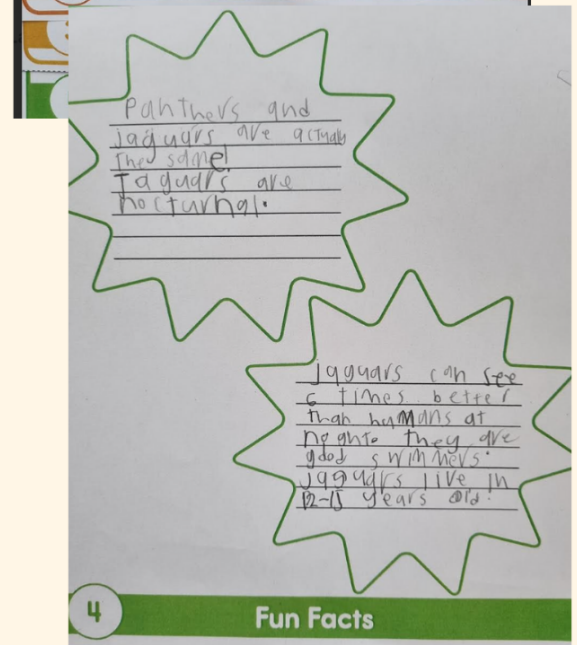 Panthers and
jaguars are actually
The same!
Jaguars are
nocturnal.
jaguars can see
6 times better
than humans at
noghto they are
good swimmers.
jaguars live in
12-15 years old.
4
Fun Facts